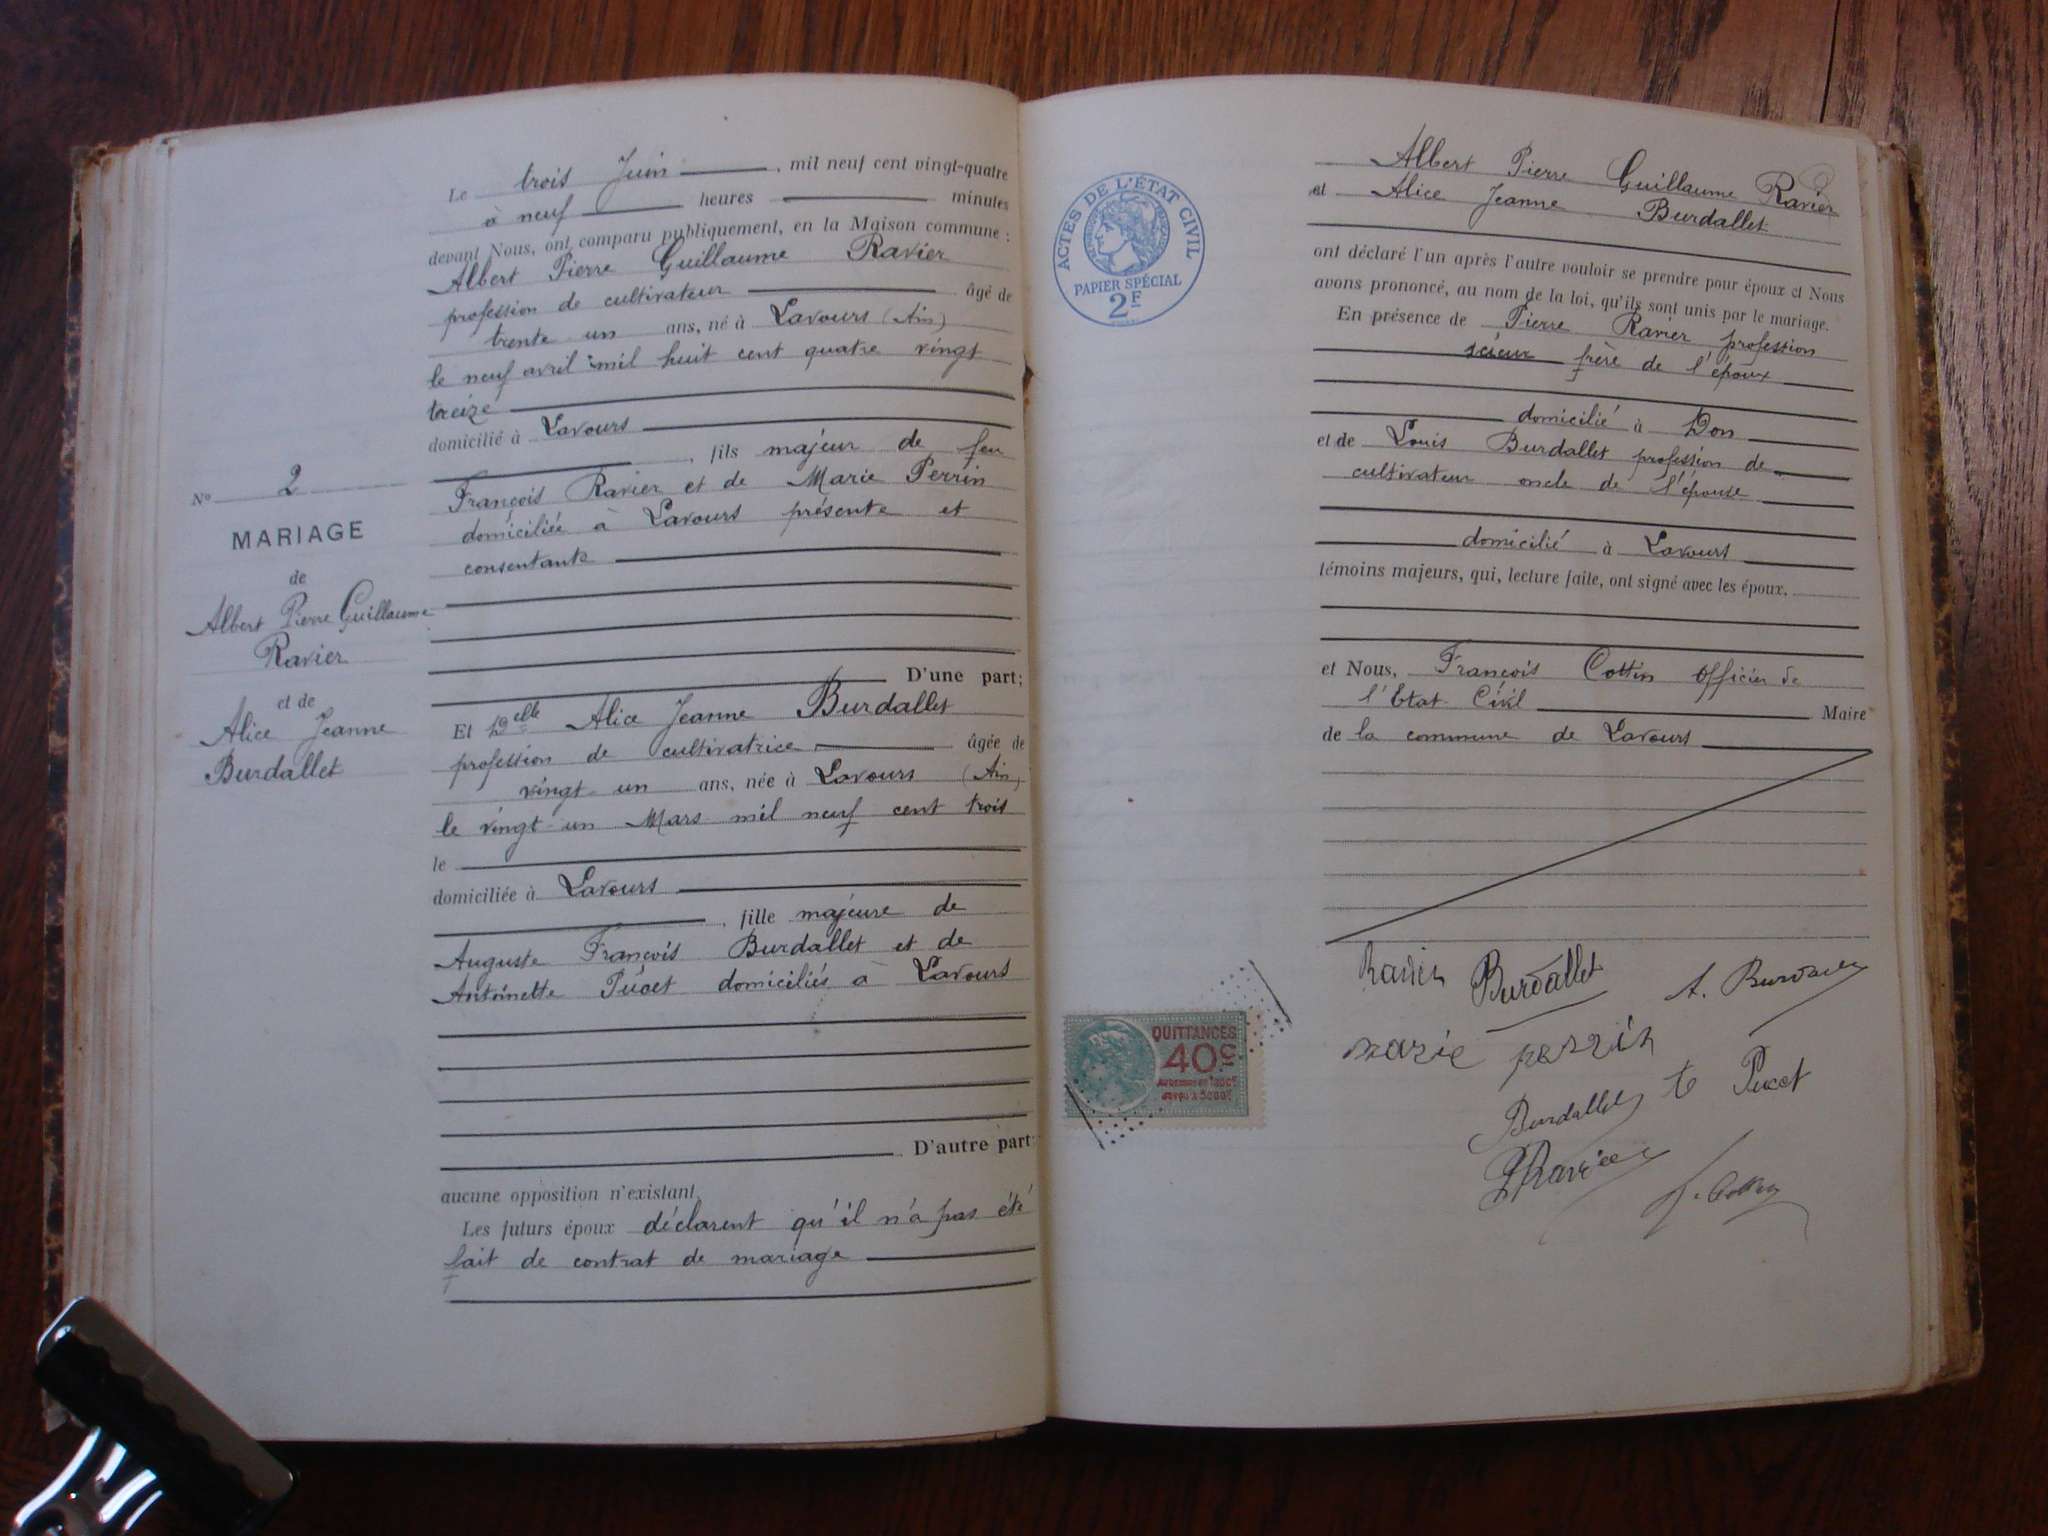 Le trois Juin, mil neuf cent vingt-quatre
à neuf heures minutes
devant Nous, ont comparu publiquement, en la Maison commune :
Albert Pierre Guillaume Ravier
profession de cultivateur âgé de
trente un ans, né à Lavours (Ain)
le neuf avril mil huit cent quatre vingt
treize
domicilié à Lavours
, fils majeur de feu
François Ravier et de Marie Perrin
domiciliée à Lavours présente et
consentante
D'une part;
Et Delle Alice Jeanne Burdallet
profession de cultivatrice âgée de
vingt-un ans, née à Lavours (Ain)
le vingt-un Mars mil neuf cent trois
le
domiciliée à Lavours
, fille majeure de
Auguste François Burdallet et de
Antoinette Pucet domiciliés à Lavours
D'autre part:
aucune opposition n'existant.
Les futurs époux déclarent qu'il n'a pas été
fait de contrat de mariage
No 2
MARIAGE
de
Albert Pierre Guillaume
Ravier
et de
Alice Jeanne
Burdallet
ACTES DE L'ÉTAT CIVIL
PAPIER SPÉCIAL
2F
Albert Pierre Guillaume Ravier
et Alice Jeanne Burdallet
ont déclaré l'un après l'autre vouloir se prendre pour époux et Nous
avons prononcé, au nom de la loi, qu'ils sont unis par le mariage.
En présence de Pierre Ravier profession
scieur frère de l'époux
domicilié à Don
et de Louis Burdallet profession de
cultivateur oncle de l'épouse
domicilié à Lavours
témoins majeurs, qui, lecture faite, ont signé avec les époux,
et Nous, François Cottin officier de
l'Etat Civil Maire
de la commune de Lavours
Ravier Burdallet A. Burdallet
marie perrin
Burdallet te Pucet
PRavier
f. Cottin
QUITTANCES
40c